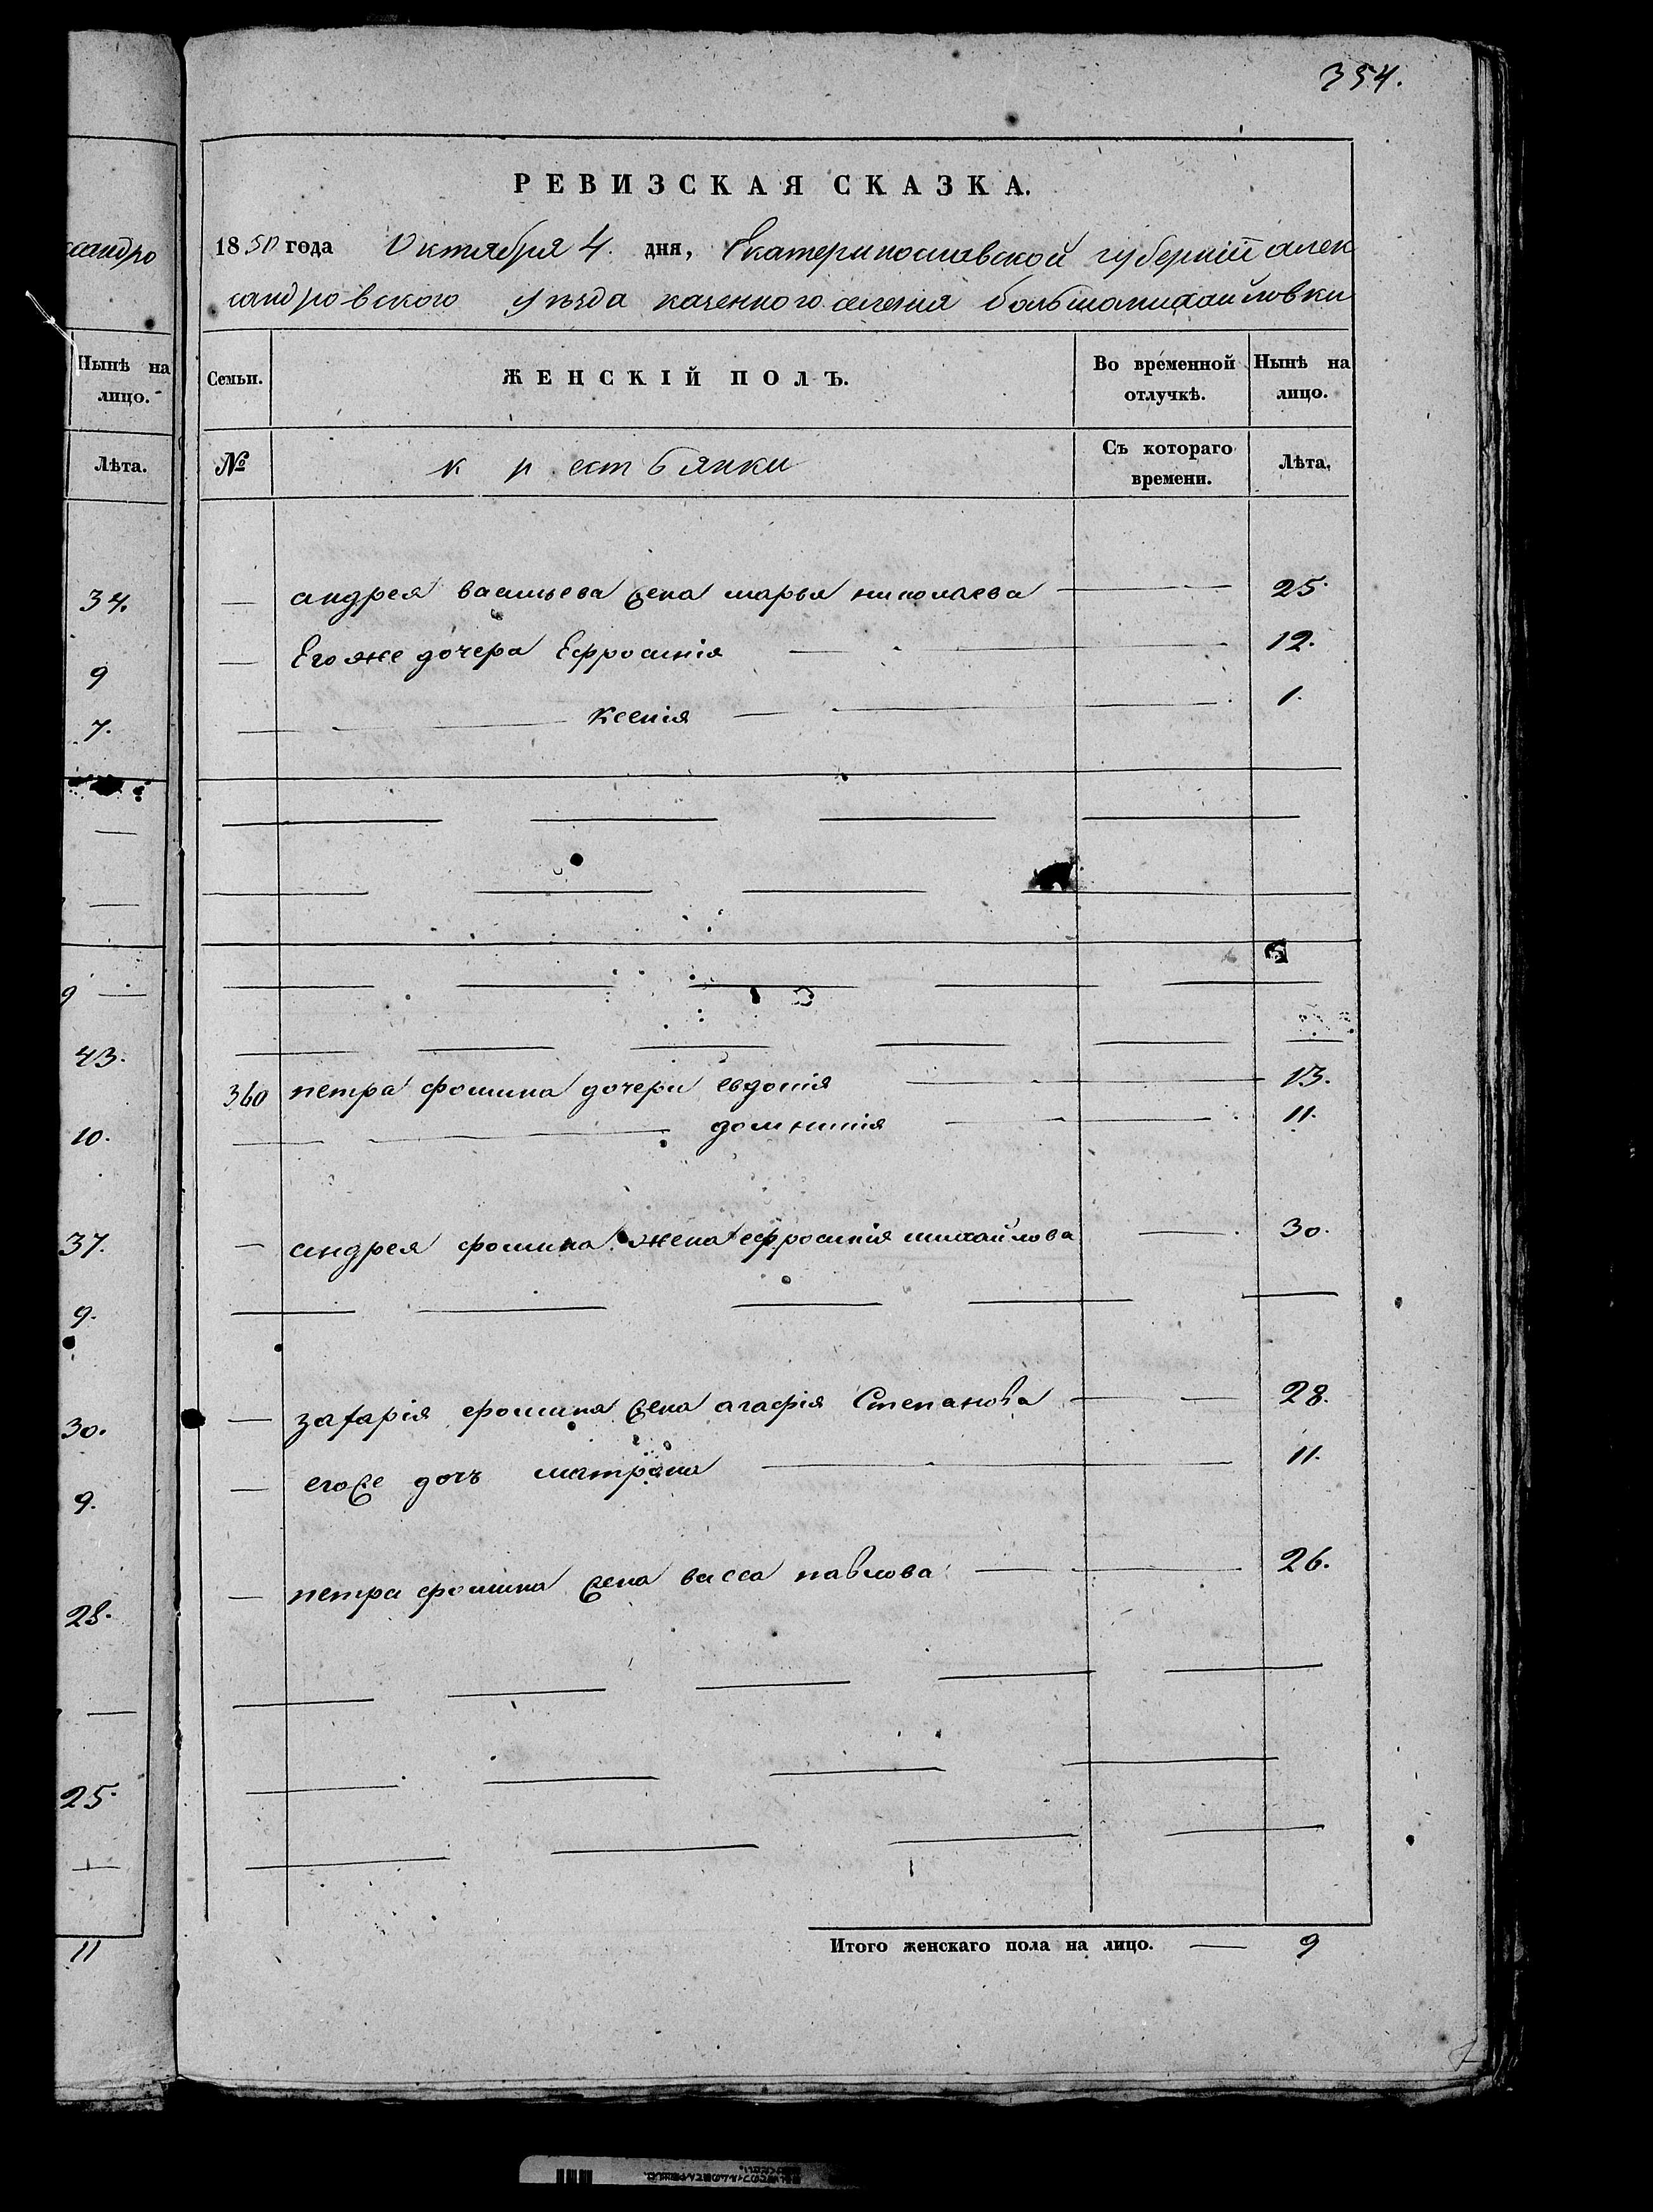 354.
РЕВИЗСКАЯ СКАЗКА.
1850 года Октября 4. дня, Екатеринославской губернии алек
сандровского уѣзда казенного селения большомихайловки
Семьи. ЖЕНСКІЙ ПОЛЪ. Во временной отлучкѣ. Нынѣ на лицо.
№ крестьянки Съ котораго времени. Лѣта.
— андрея васильева жена марья николаева — 25.
— Его же дочера Ефросинія — 12.
— — Ксенія — 1.
360 петра фомина дочери евдокія — 13.
— — домникія — 11.
— андрея фомина жена ефросинія михайлова — 30.
— захарія фомина жена агафія Степанова — 28.
— егоже дочъ матрона — 11.
— петра фомина жена васса павлова — 26.
Итого женскаго пола на лицо. — 9
ксандро
Нынѣ на
лицо.
Лѣта.
34.
9
7.
9 —
43.
10.
37.
9.
30.
9.
28.
25.
11